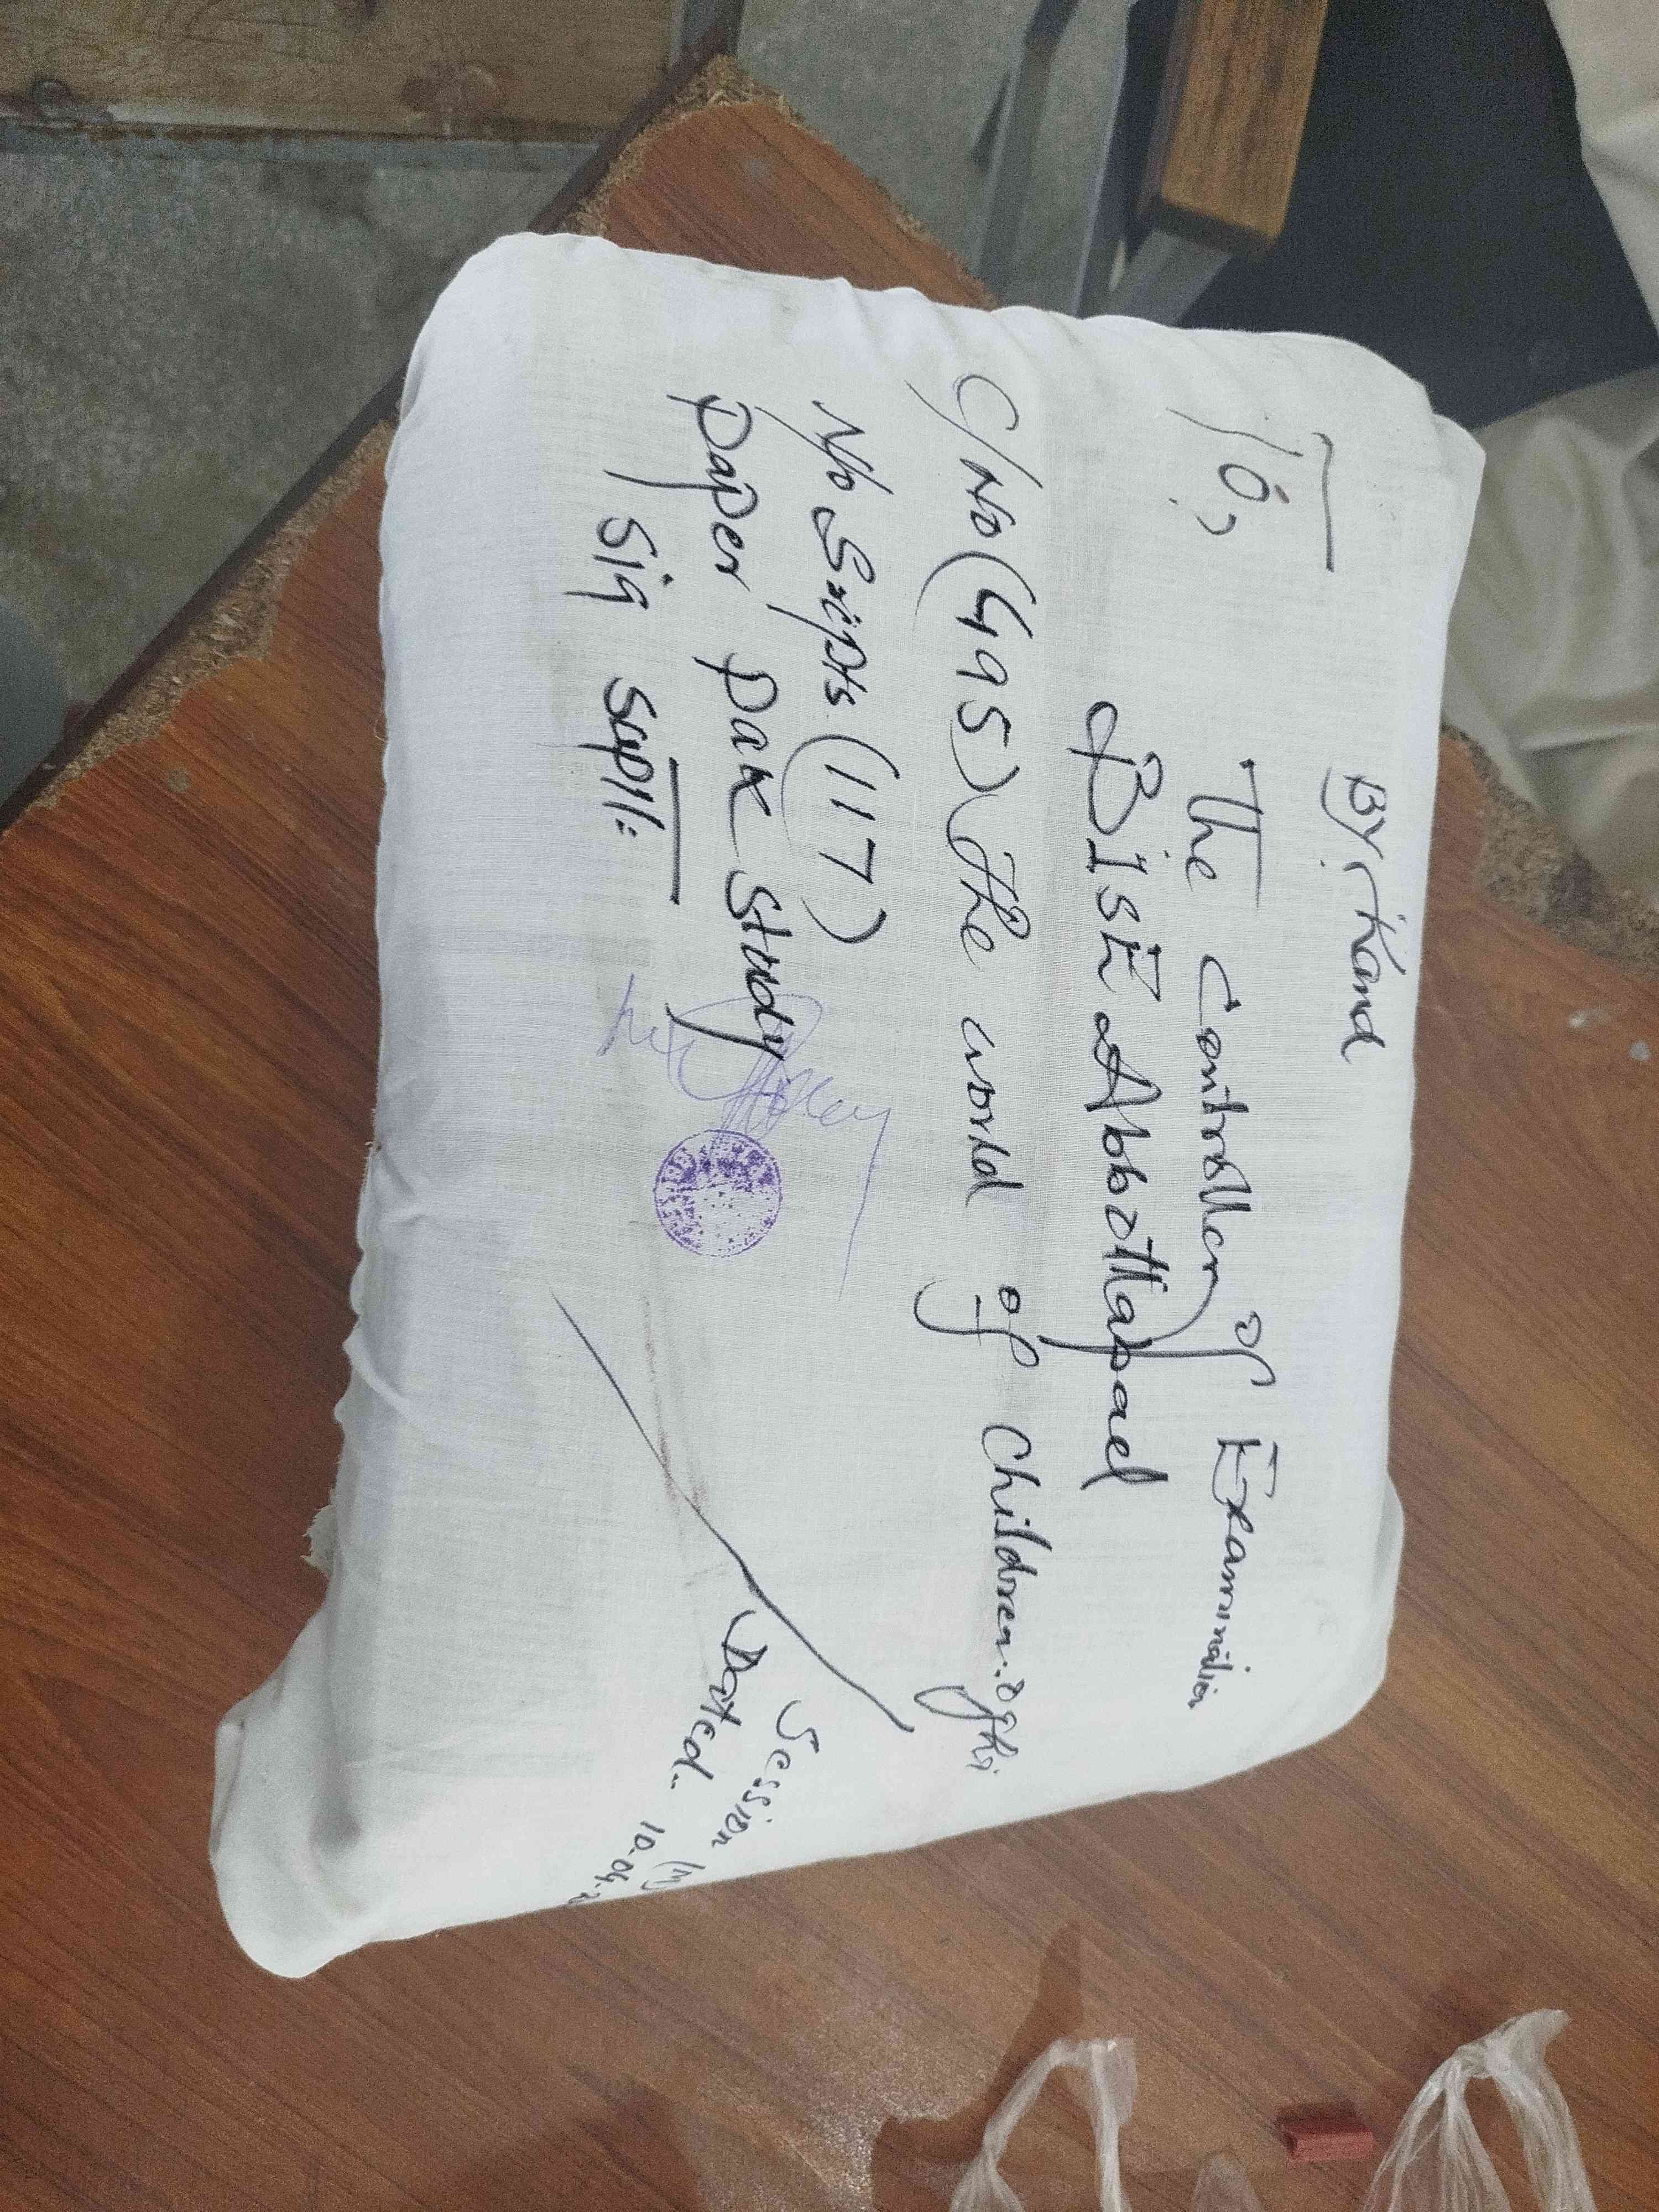 By Hand
To,
The Controller of Examination
BISE Abbottabad
C/No (495) The world of Children: oghi
No Scripts (117)
Paper Pak Study
Sig Supt:
Session (M)
Dated. 10-04-2